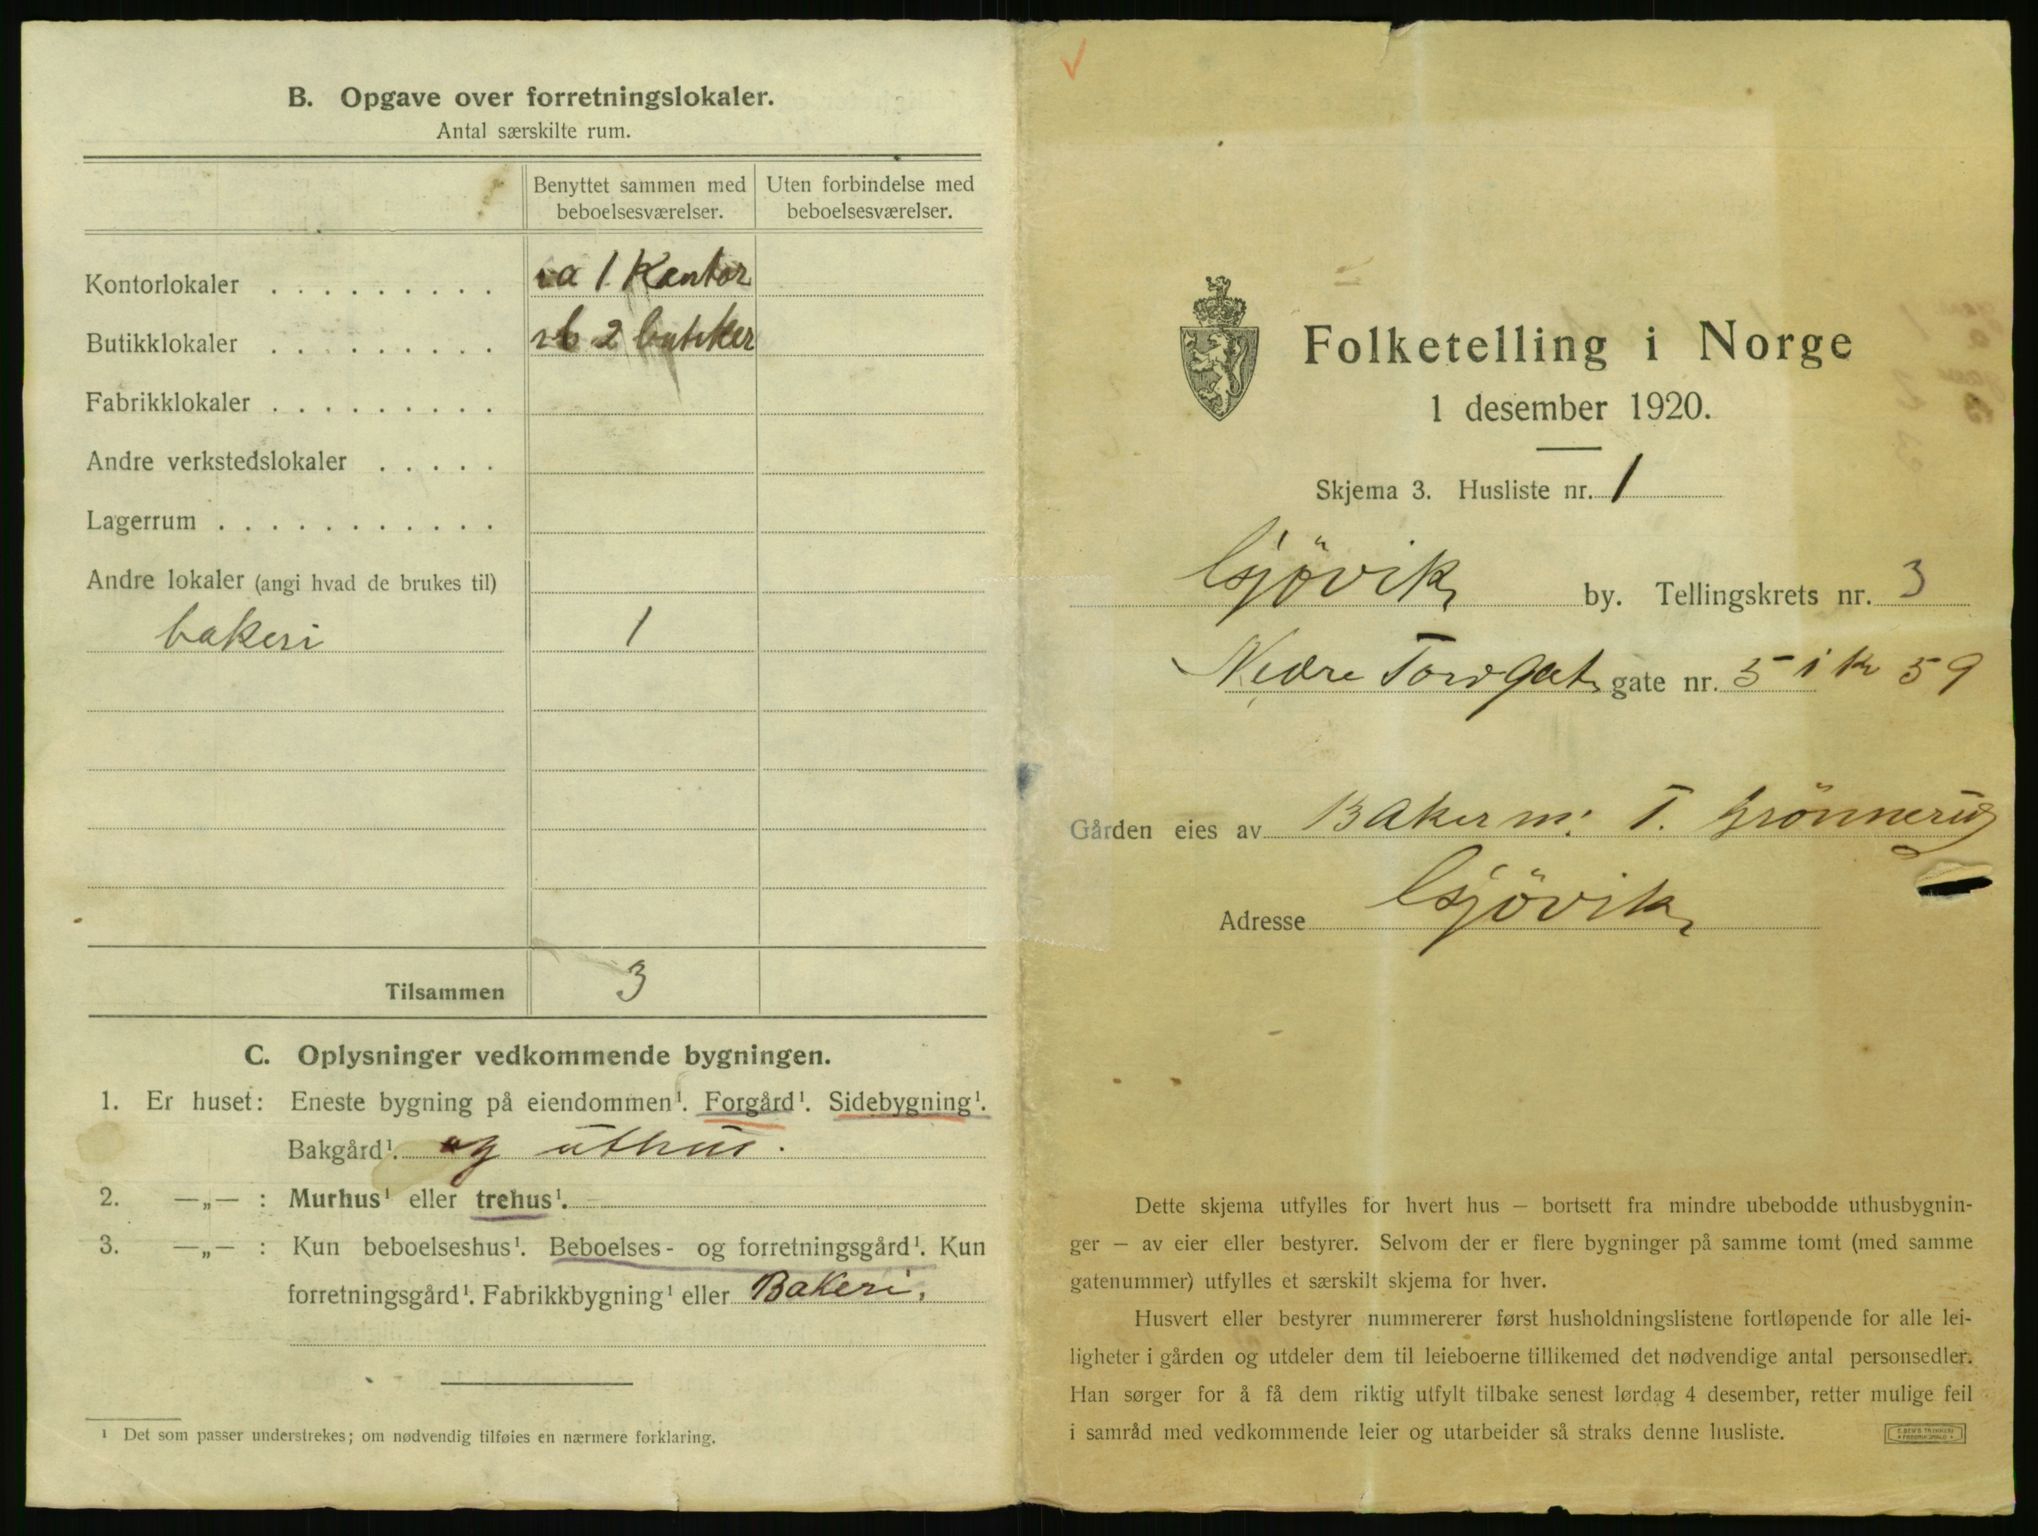 B. Opgave over forretningslokaler.
Antal særskilte rum.
Benyttet sammen med beboelsesværelser.
Uten forbindelse med beboelsesværelser.
Kontorlokaler . . . . . . . . . a 1 Kontor
Butikklokaler . . . . . . . . . b 2 butiker
Fabrikklokaler . . . . . . . . .
Andre verkstedslokaler . . . . .
Lagerrum . . . . . . . . . . .
Andre lokaler (angi hvad de brukes til)
bakeri 1
Tilsammen 3
C. Oplysninger vedkommende bygningen.
1. Er huset: Eneste bygning på eiendommen¹. Forgård¹. Sidebygning¹.
Bakgård¹. og uthus.
2. —„— : Murhus¹ eller trehus¹.
3. —„— : Kun beboelseshus¹. Beboelses- og forretningsgård¹. Kun
forretningsgård¹. Fabrikkbygning¹ eller Bakeri.
¹ Det som passer understrekes; om nødvendig tilføies en nærmere forklaring.
Folketelling i Norge
1 desember 1920.
Skjema 3. Husliste nr. 1
Gjövik by. Tellingskrets nr. 3
Nedre Torvgat gate nr. 5 i k 59
Gården eies av Bakerm: T. Grönnerud
Adresse Gjövik
Dette skjema utfylles for hvert hus — bortsett fra mindre ubebodde uthusbygnin-
ger — av eier eller bestyrer. Selvom der er flere bygninger på samme tomt (med samme
gatenummer) utfylles et særskilt skjema for hver.
Husvert eller bestyrer nummererer først husholdningslistene fortløpende for alle lei-
ligheter i gården og utdeler dem til leieboerne tillikemed det nødvendige antal personsedler.
Han sørger for å få dem riktig utfylt tilbake senest lørdag 4 desember, retter mulige feil
i samråd med vedkommende leier og utarbeider så straks denne husliste.